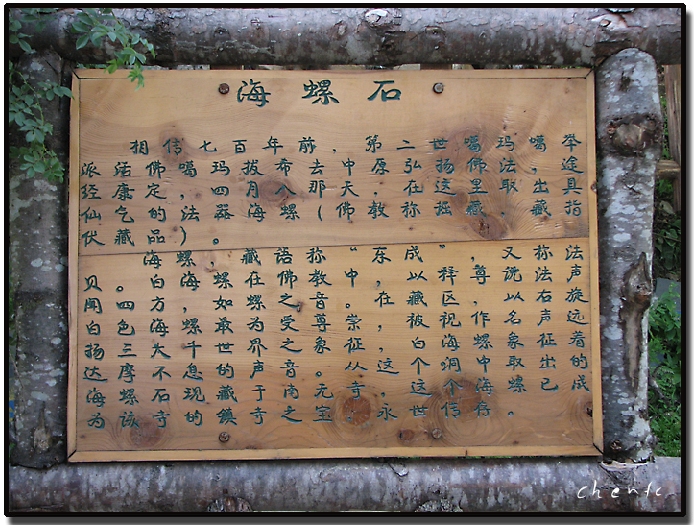 海螺石
相传七百年前，第二世噶玛噶举
派活佛噶玛拔希去中原弘扬佛法，途
经康定，四月个那天，在这里取出具
仙气的法器海螺（佛教称掘藏，藏指
伏藏品）。
海螺，藏语称“东成”，又称法
贝。白海螺在佛教中，以拜尊，说法声
闻四方，如螺之音。在藏区，以右旋
白色海螺最受尊崇，被视作名声远
扬三千大世界之象征，白海螺象征着
达摩不息的声音。从这个洞中取出的
海螺石现藏于南无寺，这个海螺已成
为该寺的镇寺之宝，永世信存。
chentc